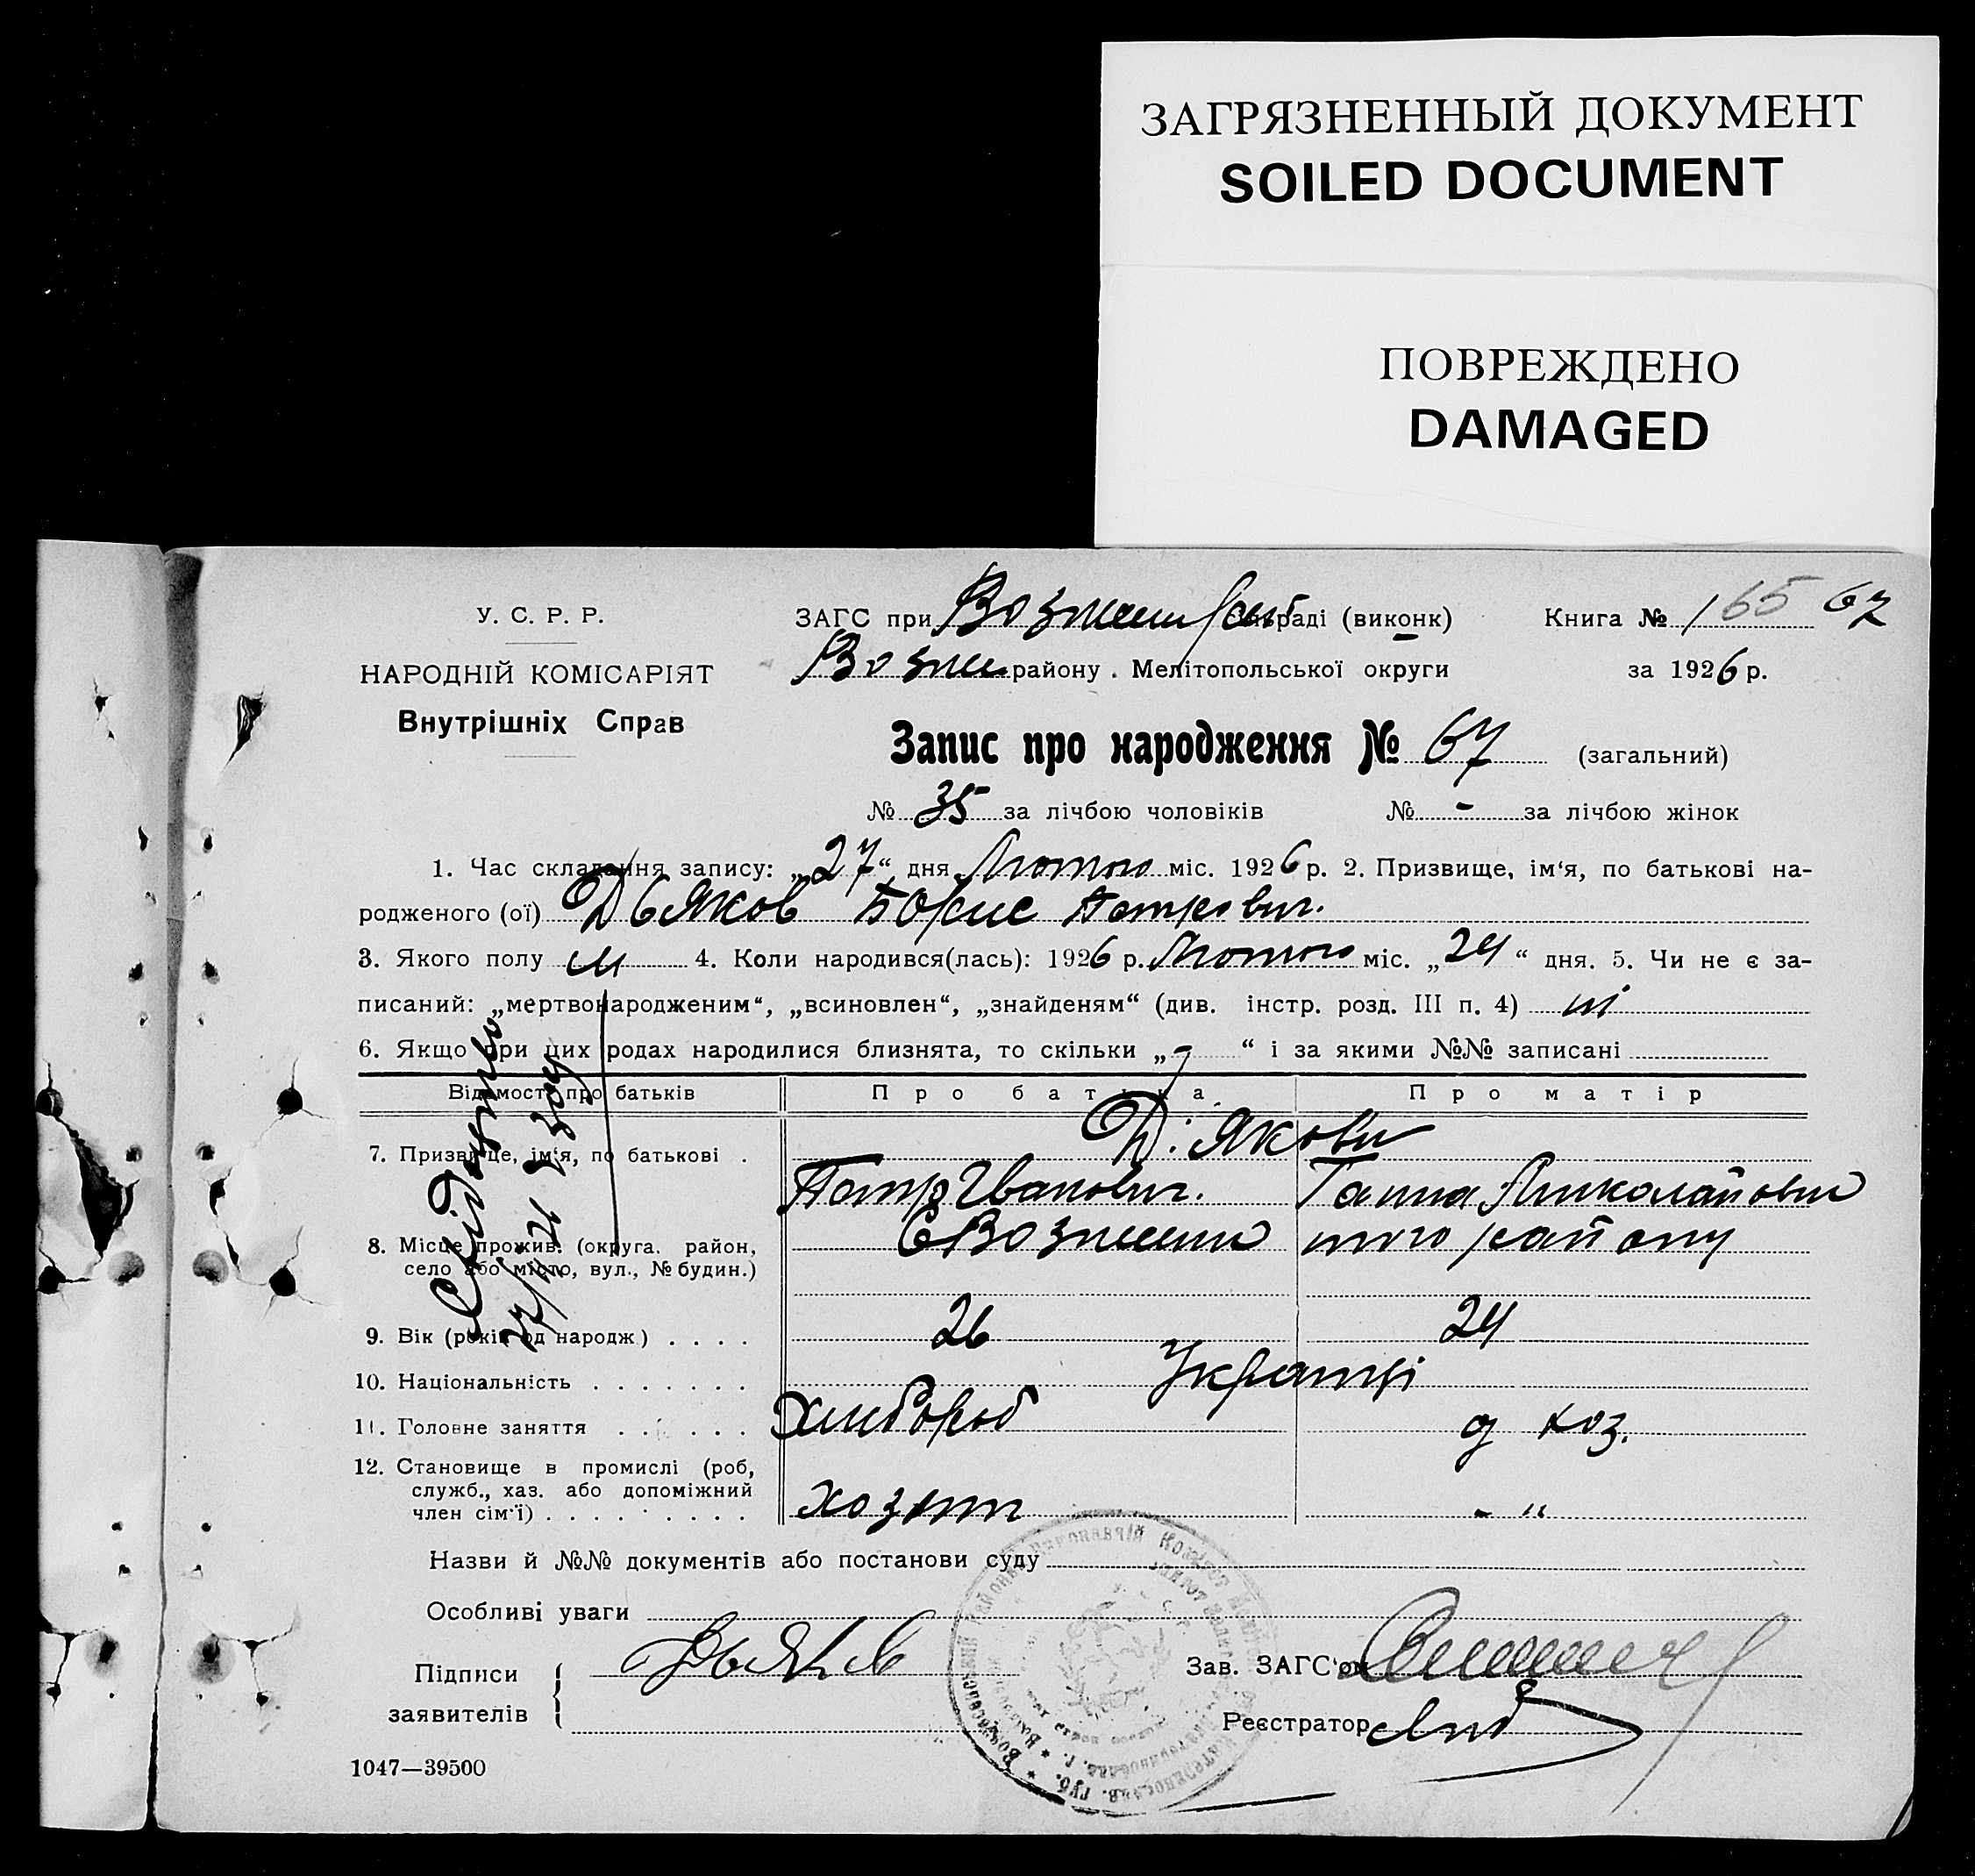 ЗАГРЯЗНЕННЫЙ ДОКУМЕНТ
SOILED DOCUMENT
ПОВРЕЖДЕНО
DAMAGED
У. С. Р. Р.
НАРОДНІЙ КОМІСАРІЯТ
Внутрішніх Справ
ЗАГС при раді (виконк)
району . Мелітопольської округи
Книга № 165 67
за 1926 р.
Запис про народження № 67 (загальний)
№ 35 за лічбою чоловіків № - за лічбою жінок
1. Час складання запису: „27“ дня Лютого міс. 1926 р. 2. Призвище, ім‘я, по батькові на-
родженого (ої) Дьяков Борис Петрович.
3. Якого полу м 4. Коли народився(лась): 1926 р. Лютого міс. „24“ дня. 5. Чи не є за-
писаний: „мертвонародженим“, „всиновлен“, „знайденям“ (див. інстр. розд. III п. 4) ні
6. Якщо при цих родах народилися близнята, то скільки „-“ і за якими №№ записані
Відомості про батьків Про батька Про матір
7. Призвище, ім‘я, по батькові .
Д.:якови
Петро Иванович. Ганна Николайовн
8. Місце прожив. (округа. район,
село або місто, вул., № будин.)
району
9. Вік (років од народж) . . . . 26 24
10. Національність . . . . . . . Українці
11. Головне заняття . . . . . . хлібороб д хоз.
12. Становище в промислі (роб,
служб., хаз. або допоміжний
член сім‘ї) . . . . . . . . . хозяїн - "
Назви й №№ документів або постанови суду
Особливі уваги
Підписи
заявителів
Дьяков
Зав. ЗАГС‘ом
Реєстратор
1047—39500